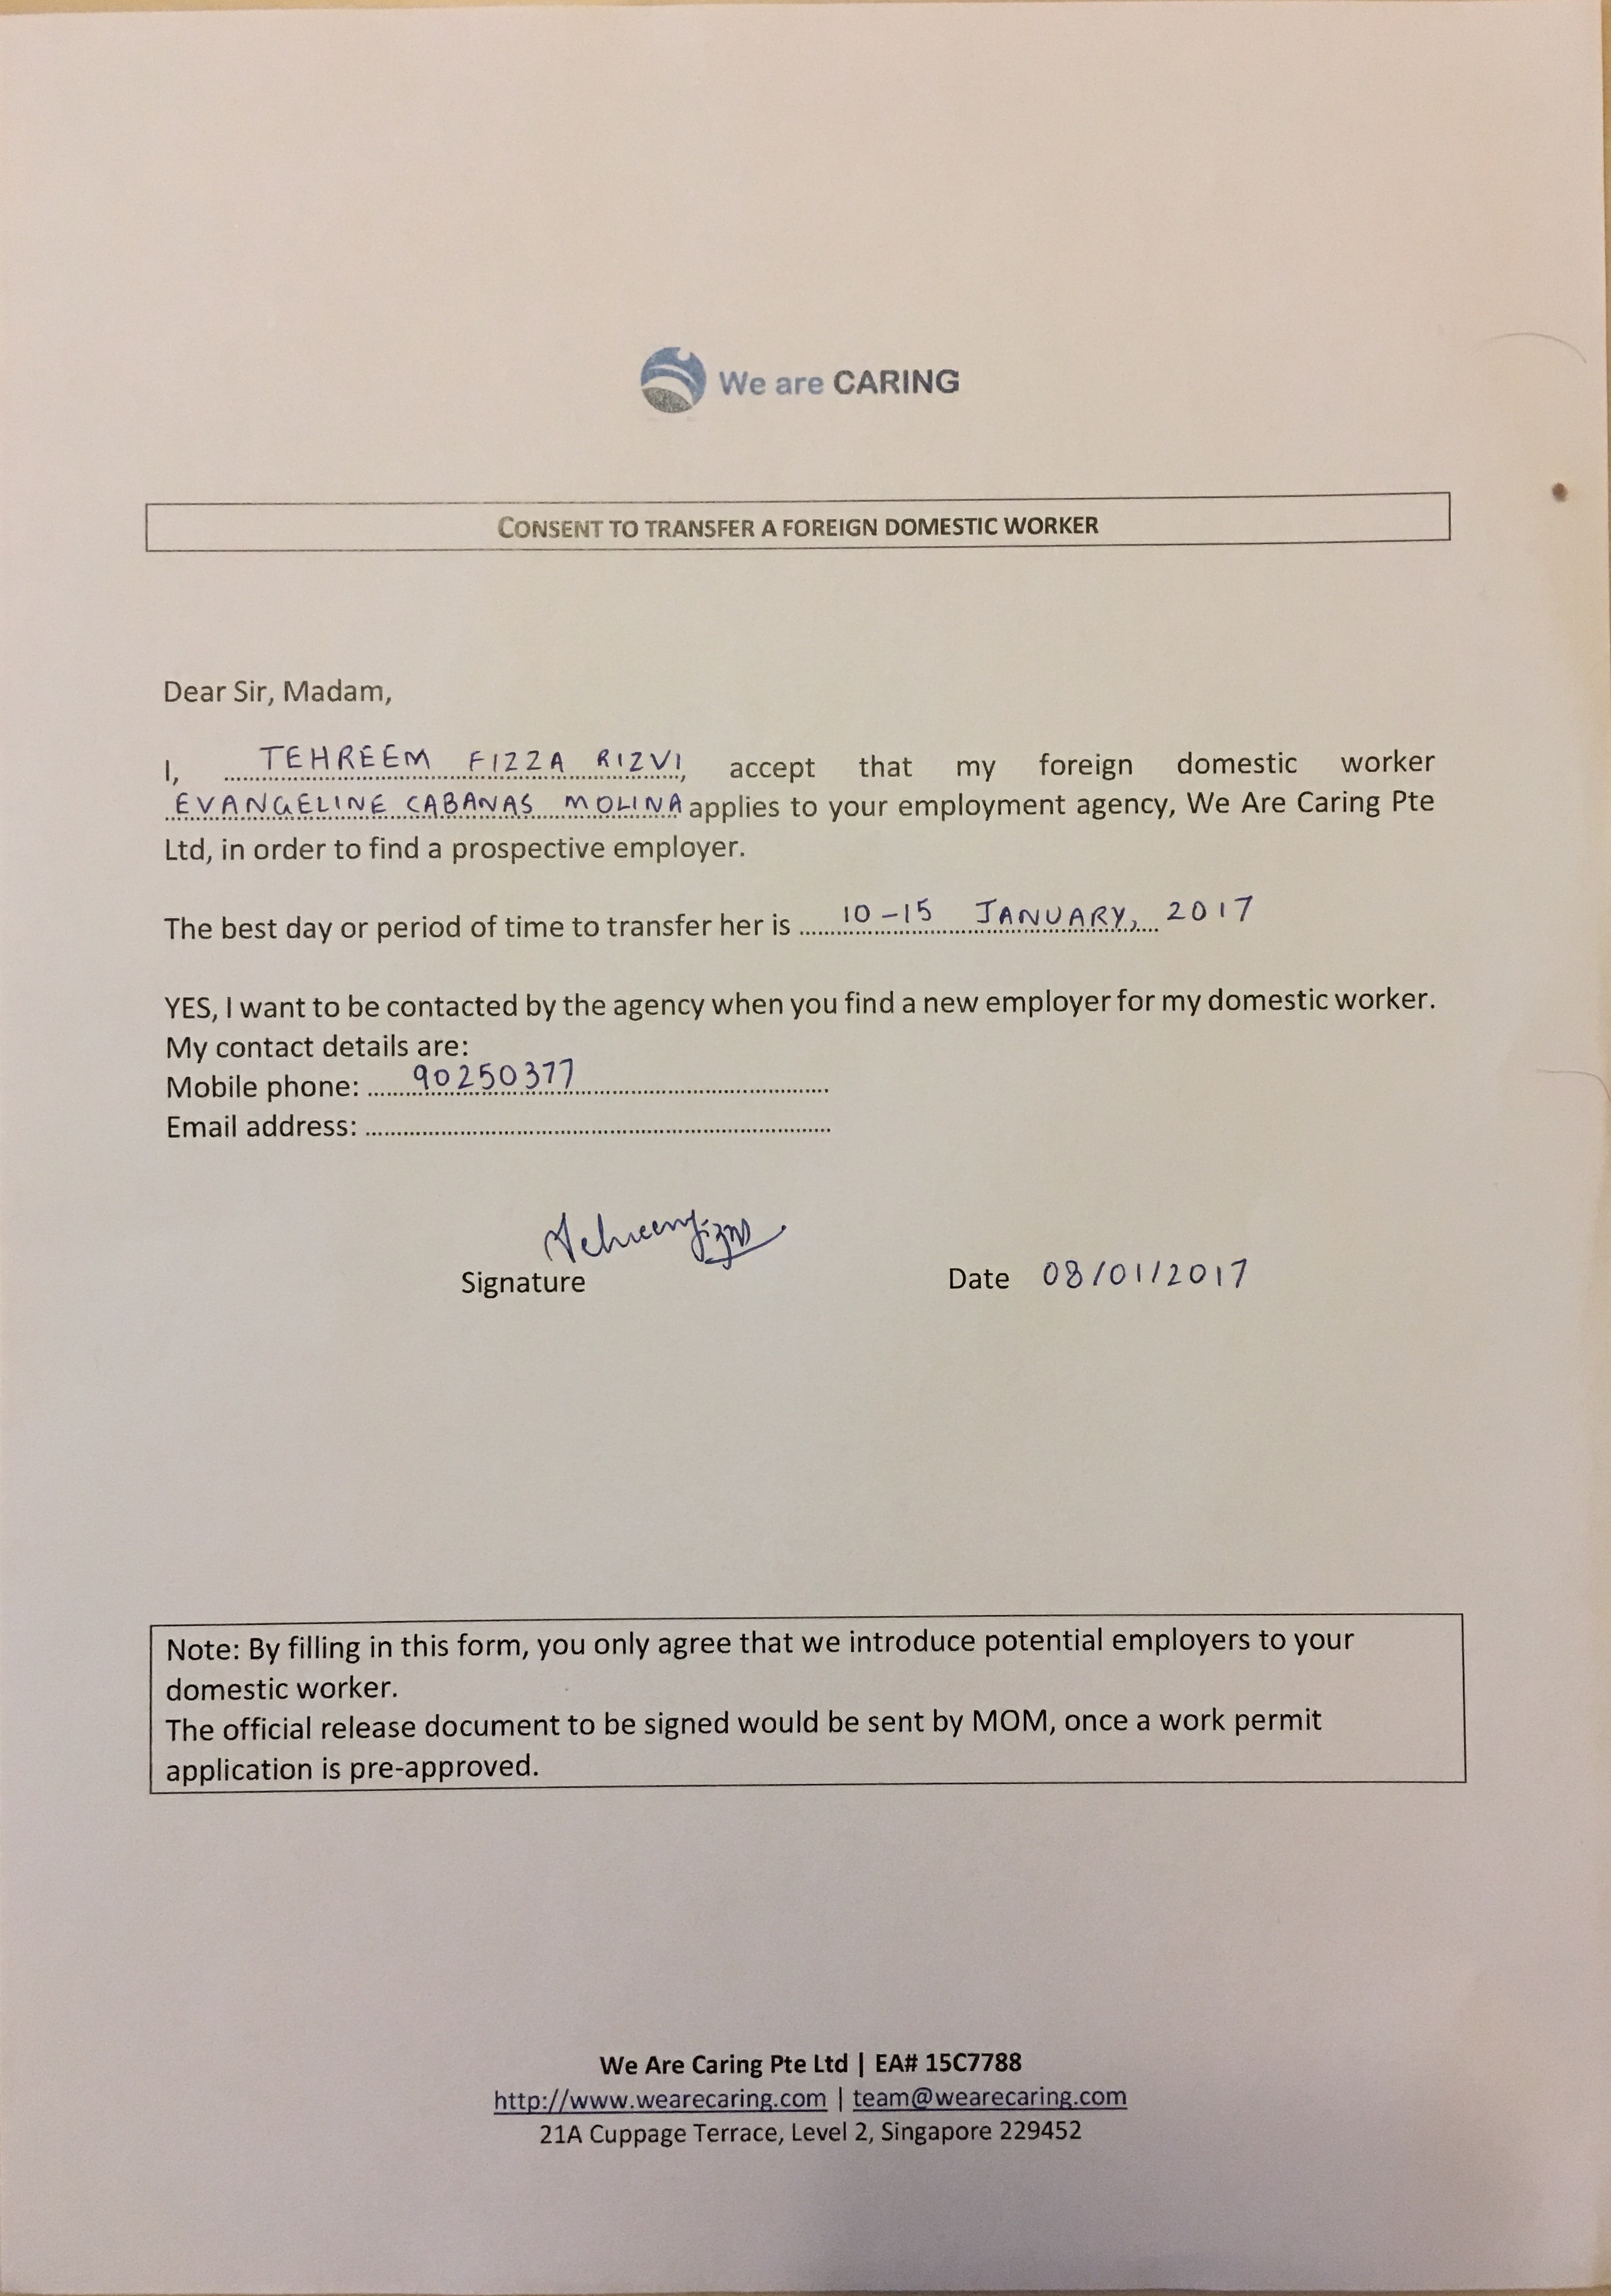 We are CARING
CONSENT TO TRANSFER A FOREIGN DOMESTIC WORKER
Dear Sir, Madam,
I, TEHREEM FIZZA RIZVI, accept that my foreign domestic worker
EVANGELINE CABANAS MOLINA applies to your employment agency, We Are Caring Pte
Ltd, in order to find a prospective employer.
The best day or period of time to transfer her is 10-15 JANUARY, 2017
YES, I want to be contacted by the agency when you find a new employer for my domestic worker.
My contact details are:
Mobile phone: 90250377
Email address:
Signature Date 08/01/2017
Note: By filling in this form, you only agree that we introduce potential employers to your
domestic worker.
The official release document to be signed would be sent by MOM, once a work permit
application is pre-approved.
We Are Caring Pte Ltd | EA# 15C7788
http://www.wearecaring.com | team@wearecaring.com
21A Cuppage Terrace, Level 2, Singapore 229452